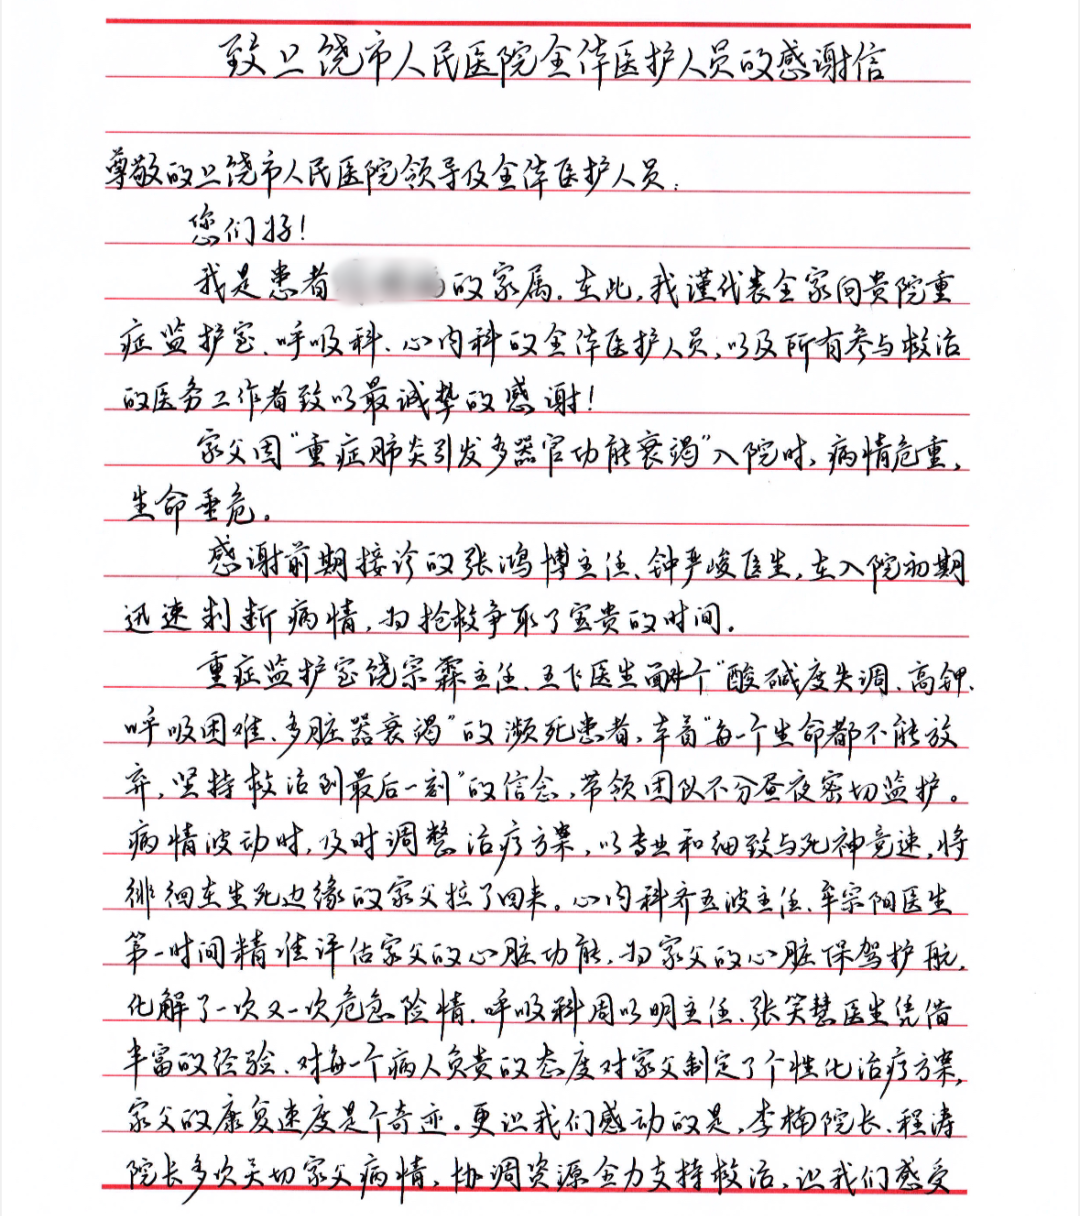 致上饶市人民医院全体医护人员的感谢信
尊敬的上饶市人民医院领导及全体医护人员：
您们好！
我是患者的家属。在此，我谨代表全家向贵院重
症监护室、呼吸科、心内科的全体医护人员，以及所有参与救治
的医务工作者致以最诚挚的感谢！
家父因“重症肺炎引发多器官功能衰竭”入院时，病情危重，
生命垂危。
感谢前期接诊的张鸿博主任、钟严峻医生，在入院初期
迅速判断病情，为抢救争取了宝贵的时间。
重症监护室饶宗霖主任、王飞医生面对“酸碱度失调、高钾、
呼吸困难、多脏器衰竭”的濒死患者，本着“每一个生命都不能放
弃，坚持救治到最后一刻”的信念，带领团队不分昼夜密切监护。
病情波动时，及时调整治疗方案，以专业和细致与死神竞速，将
徘徊在生死边缘的家父拉了回来。心内科齐五波主任、牟宗阳医生
第一时间精准评估家父的心脏功能，为家父的心脏保驾护航，
化解了一次又一次危急险情。呼吸科周以明主任、张笑慧医生凭借
丰富的经验、对每一个病人负责的态度对家父制定了个性化治疗方案，
家父的康复速度是个奇迹。更让我们感动的是，李楠院长、程涛
院长多次关切家父病情，协调资源全力支持救治，让我们感受